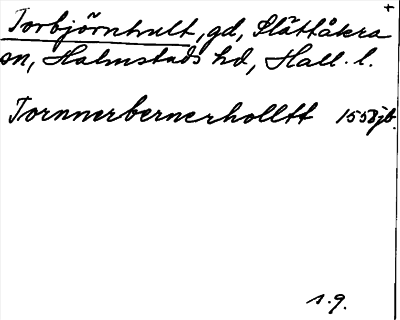 Torbjörnhult, gd, Slättåkra
sn, Halmstads hd, Hall. l.
Tornnerbernerholltt 1558 jb.
s. 9.